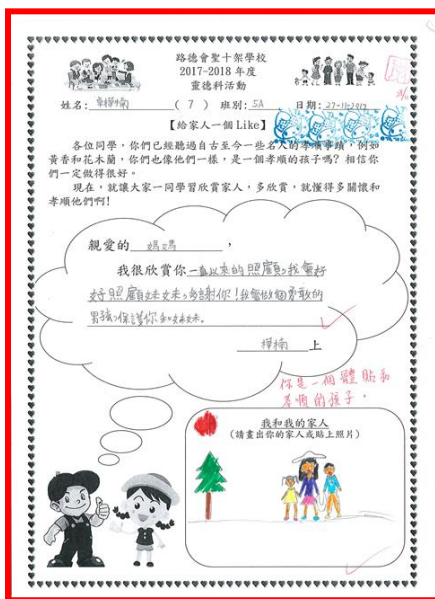 路德會聖十架學校
2017-2018 年度
靈德科活動
姓名: (7) 班別: 5A 日期: 27-11-2017
【給家人一個 Like】
各位同學,你們已經聽過自古至今一些名人的孝順事蹟,例如
黃香和花木蘭,你們也像他們一樣,是一個孝順的孩子嗎? 相信你
們一定做得很好。
現在,就讓大家一同學習欣賞家人,多欣賞,就懂得多關懷和
孝順他們啊!
親愛的 媽媽 ,
我很欣賞你一直以來的照顧,我會好
好照顧妹妹,多謝你!我會做個勇敢的
男孩,保護你和妹妹。
樺楠 上
你是一個體貼和
孝順的孩子。
我和我的家人
(請畫出你的家人或貼上照片)